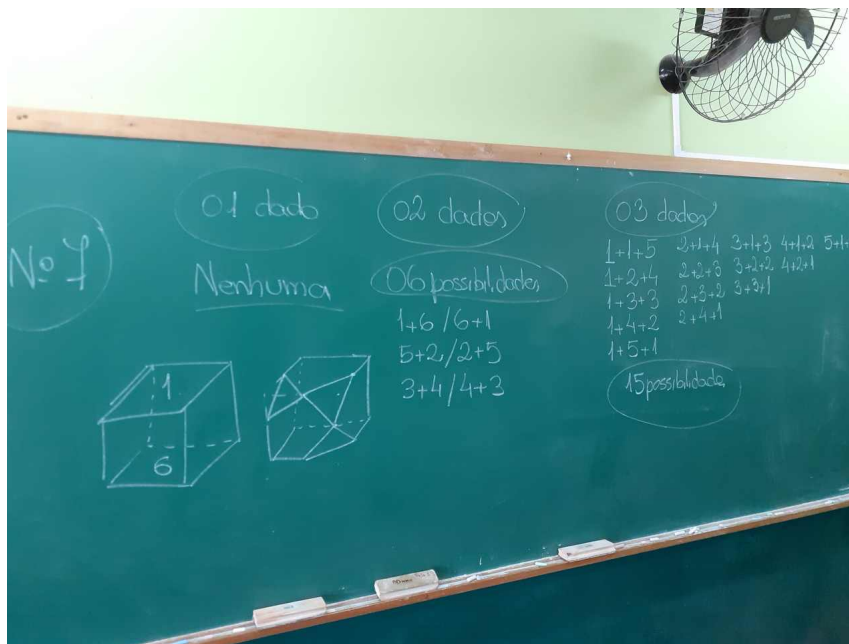 Nº 7
01 dado
Nenhuma
1
6
02 dados
06 possibilidades
1+6 / 6+1
5+2 / 2+5
3+4 / 4+3
03 dados
1+1+5 2+1+4 3+1+3 4+1+2 5+1+
1+2+4 2+2+3 3+2+2 4+2+1
1+3+3 2+3+2 3+3+1
1+4+2 2+4+1
1+5+1
15 possibilidades